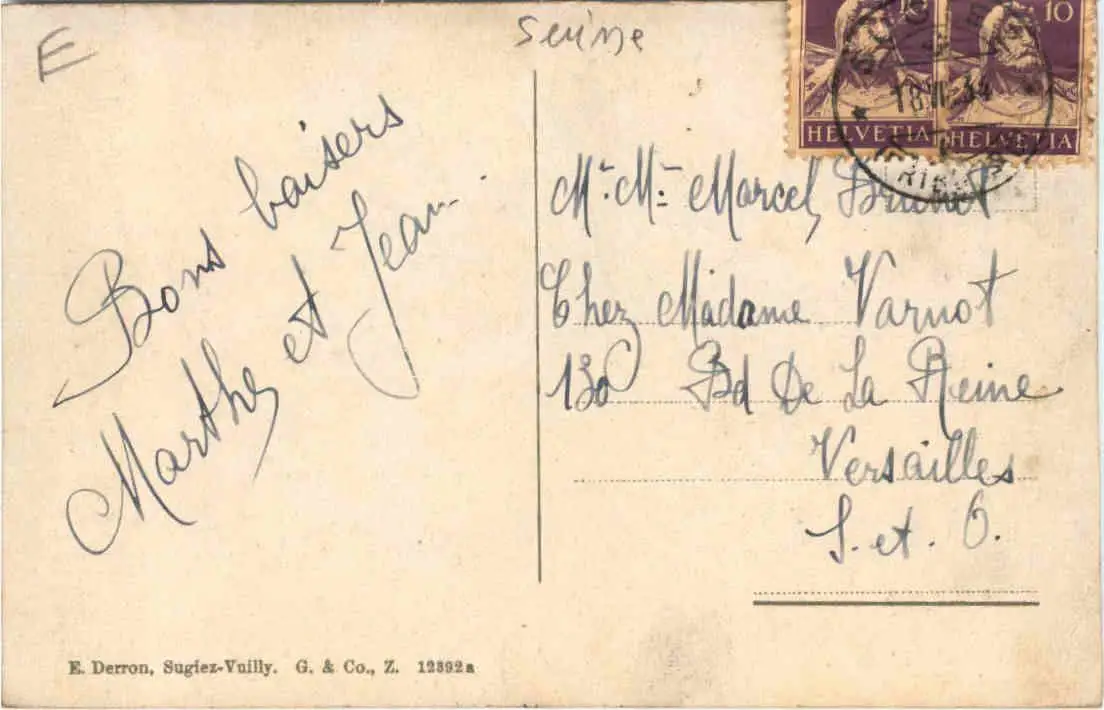 E
Suisse
10
10
HELVETIA
HELVETIA
Bons baisers
Marthe et Jean.
Mr. Me. Marcel
Chez Madame Varnot
130 Bd De La Reine
Versailles
S. et. O.
E. Derron, Sugiez-Vuilly. G. & Co., Z. 12392a